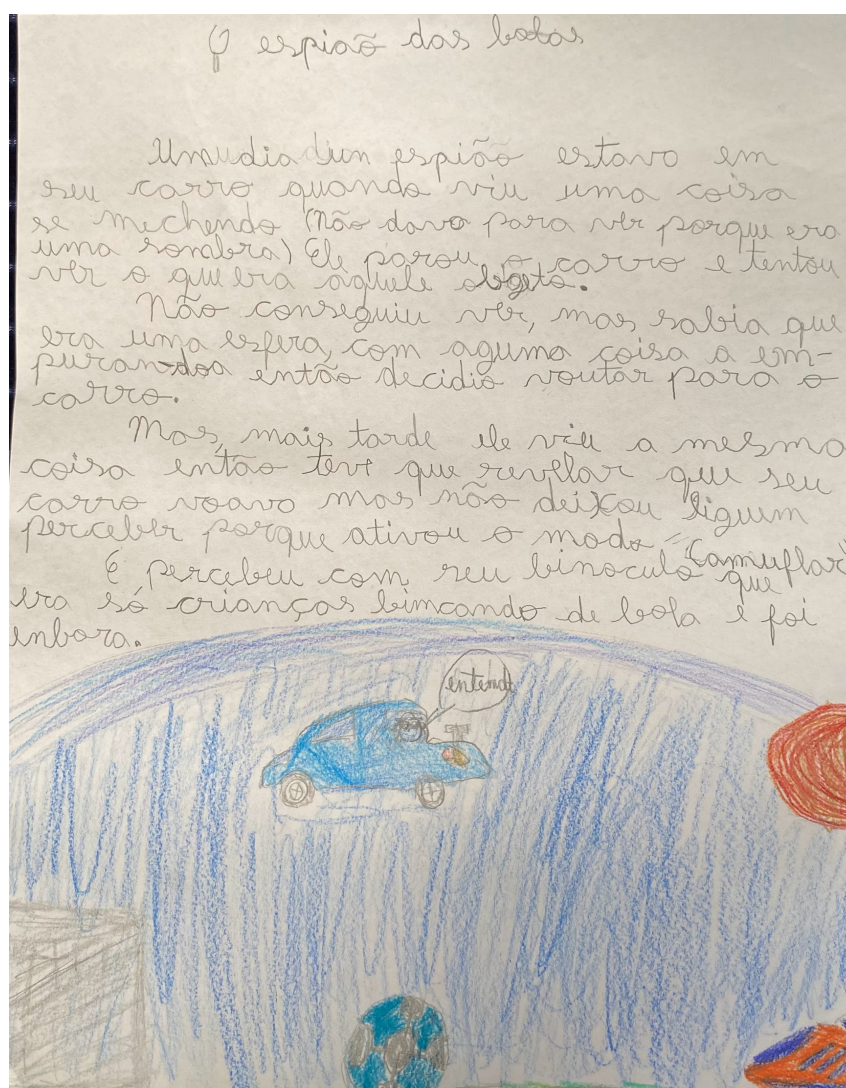 O espião das bolas
Um dia um espião estava em
seu carro quando viu uma coisa
se mechendo (Não dava para ver porque era
uma sombra) Ele parou o carro e tentou
ver o que era aquele obgeto.
Não conseguiu ver, mas sabia que
era uma esfera, com aguma coisa a em-
purandoa então decidio voutar para o
carro.
Mas, mais tarde ele viu a mesma
coisa então teve que revelar que seu
carro voava mas não deixou niguem
perceber porque ativou o modo "Camuflar"
E percebeu com seu binoculo que
era só crianças bimcando de bola e foi
enbora.
entendi